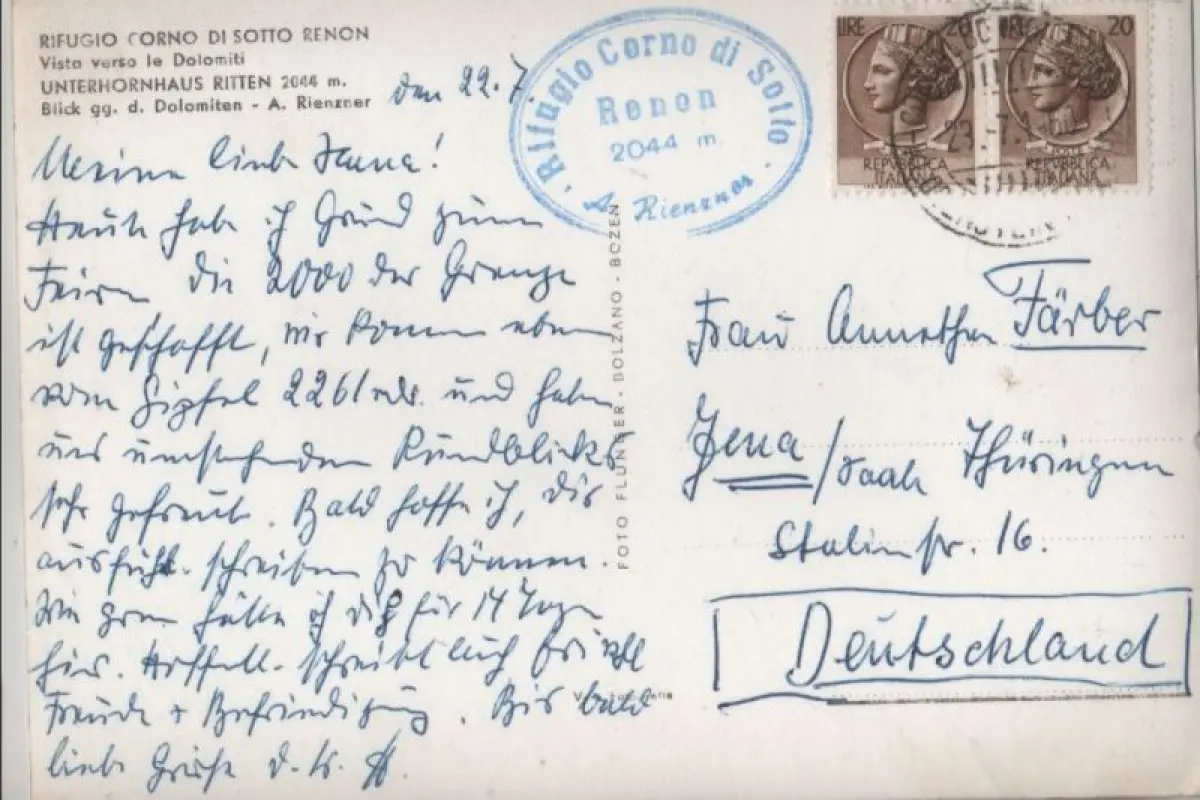 RIFUGIO CORNO DI SOTTO RENON
Vista verso le Dolomiti
UNTERHORNHAUS RITTEN 2044 m.
Blick gg. d. Dolomiten - A. Rienzner
den 22.7
Rifugio Corno di Sotto
Renon
2044 m.
A. Rienzner
LIRE 20 20
REPVBBLICA ITALIANA REPVBBLICA ITALIANA
23. 7
Meine liebe
Heute habe ich Grund zum
Feiern die 2000 der Grenze
ist geschafft, wir kommen eben
vom Gipfel 2261 und haben
uns umstehenden Rundblicks
sehr gefreut. Bald hoffe ich, dir
ausführl. schreiben zu können.
Wie gern hätte ich dich für 14 Tage
hier. Hoffentl. schreibt auch
Freude + Befriedigung. Bis bald
liebe Grüße
FOTO FLUNGER - BOLZANO - BOZEN
Frau Färber
Jena/Saale Thüringen
Stalinstr. 16.
Deutschland